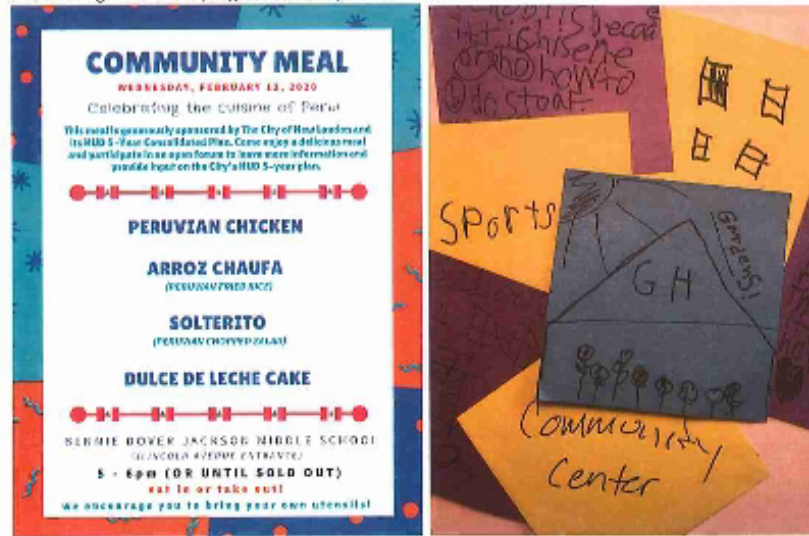 COMMUNITY MEAL
WEDNESDAY, FEBRUARY 12, 2020
Celebrating the cuisine of Peru!
This meal is generously sponsored by The City of New London and
its HUD 5-Year Consolidated Plan. Come enjoy a delicious meal
and participate in an open forum to learn more information and
provide input on the City's HUD 5-year plan.
PERUVIAN CHICKEN
ARROZ CHAUFA
(PERUVIAN FRIED RICE)
SOLTERITO
(PERUVIAN CHOPPED SALAD)
DULCE DE LECHE CAKE
BENNIE DOVER JACKSON MIDDLE SCHOOL
(LINCOLN AVENUE ENTRANCE)
5 - 6pm (OR UNTIL SOLD OUT)
eat in or take out!
we encourage you to bring your own utensils!
how to
Sports
Gardens!
GH
Community
Center